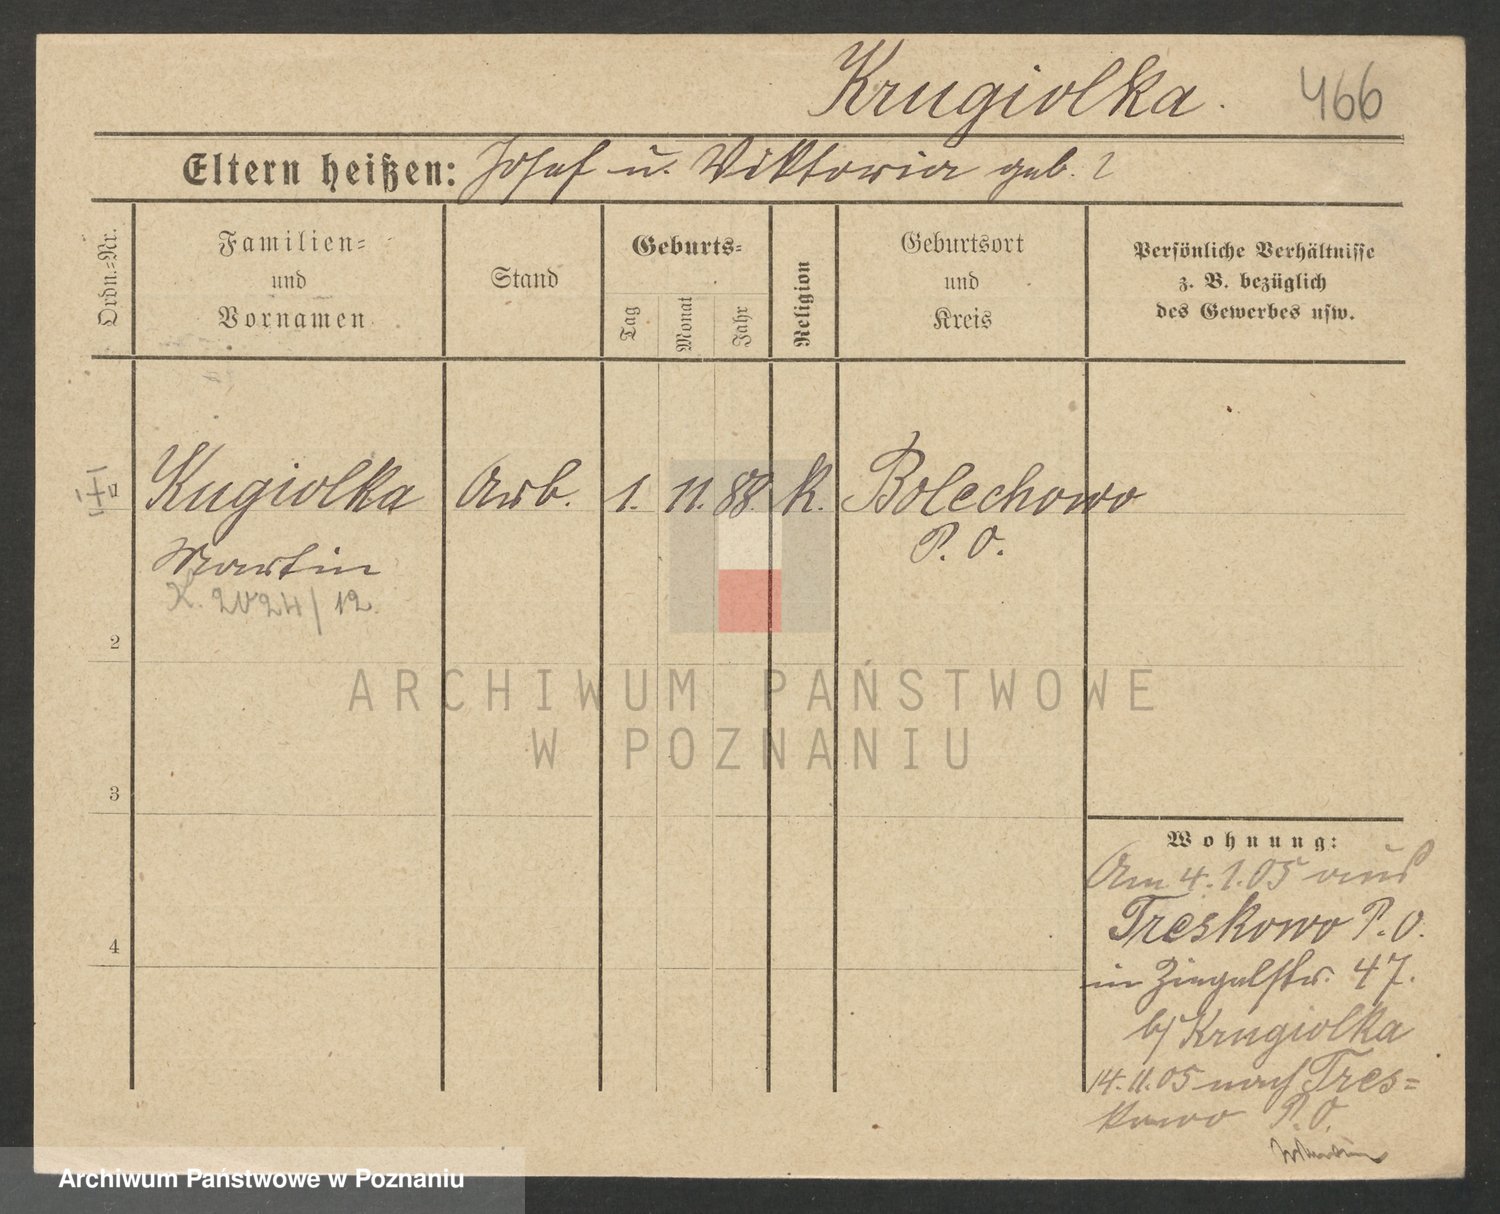 Krugiolka. 466
Eltern heißen: Josef u. Viktoria geb. ?
Ordn.=Nr.
Familien=
und
Vornamen
Stand
Geburts=
Tag
Monat
Jahr
Religion
Geburtsort
und
Kreis
Persönliche Verhältnisse
z. B. bezüglich
des Gewerbes usw.
Kugiolka Arb. 1. 11. 88. k. Bolechowo
Martin P. O.
K. 2024/12.
2
3
4
ARCHIWUM PAŃSTWOWE
W POZNANIU
Wohnung:
Am 4.1.05 aus
Treskowo P. O.
in Ziegelstr. 47.
b/ Krugiolka
14.11.05 nach Tres=
kowo P. O.
Archiwum Państwowe w Poznaniu